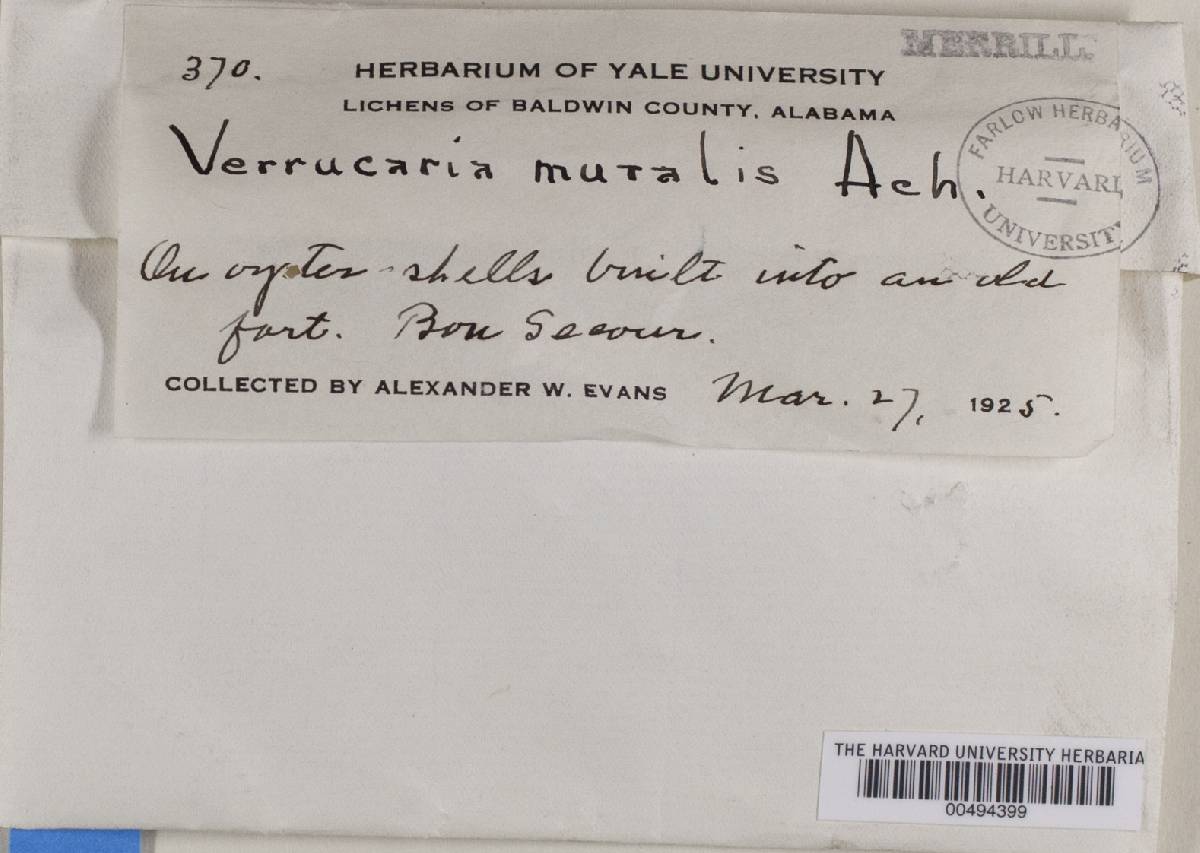 MERRILL.
370.
HERBARIUM OF YALE UNIVERSITY
LICHENS OF BALDWIN COUNTY, ALABAMA
Verrucaria muralis Ach.
FARLOW HERBARIUM
HARVARD
UNIVERSITY
On oyster-shells built into an old
fort. Bon Secour.
COLLECTED BY ALEXANDER W. EVANS Mar. 27, 1925.
THE HARVARD UNIVERSITY HERBARIA
00494399